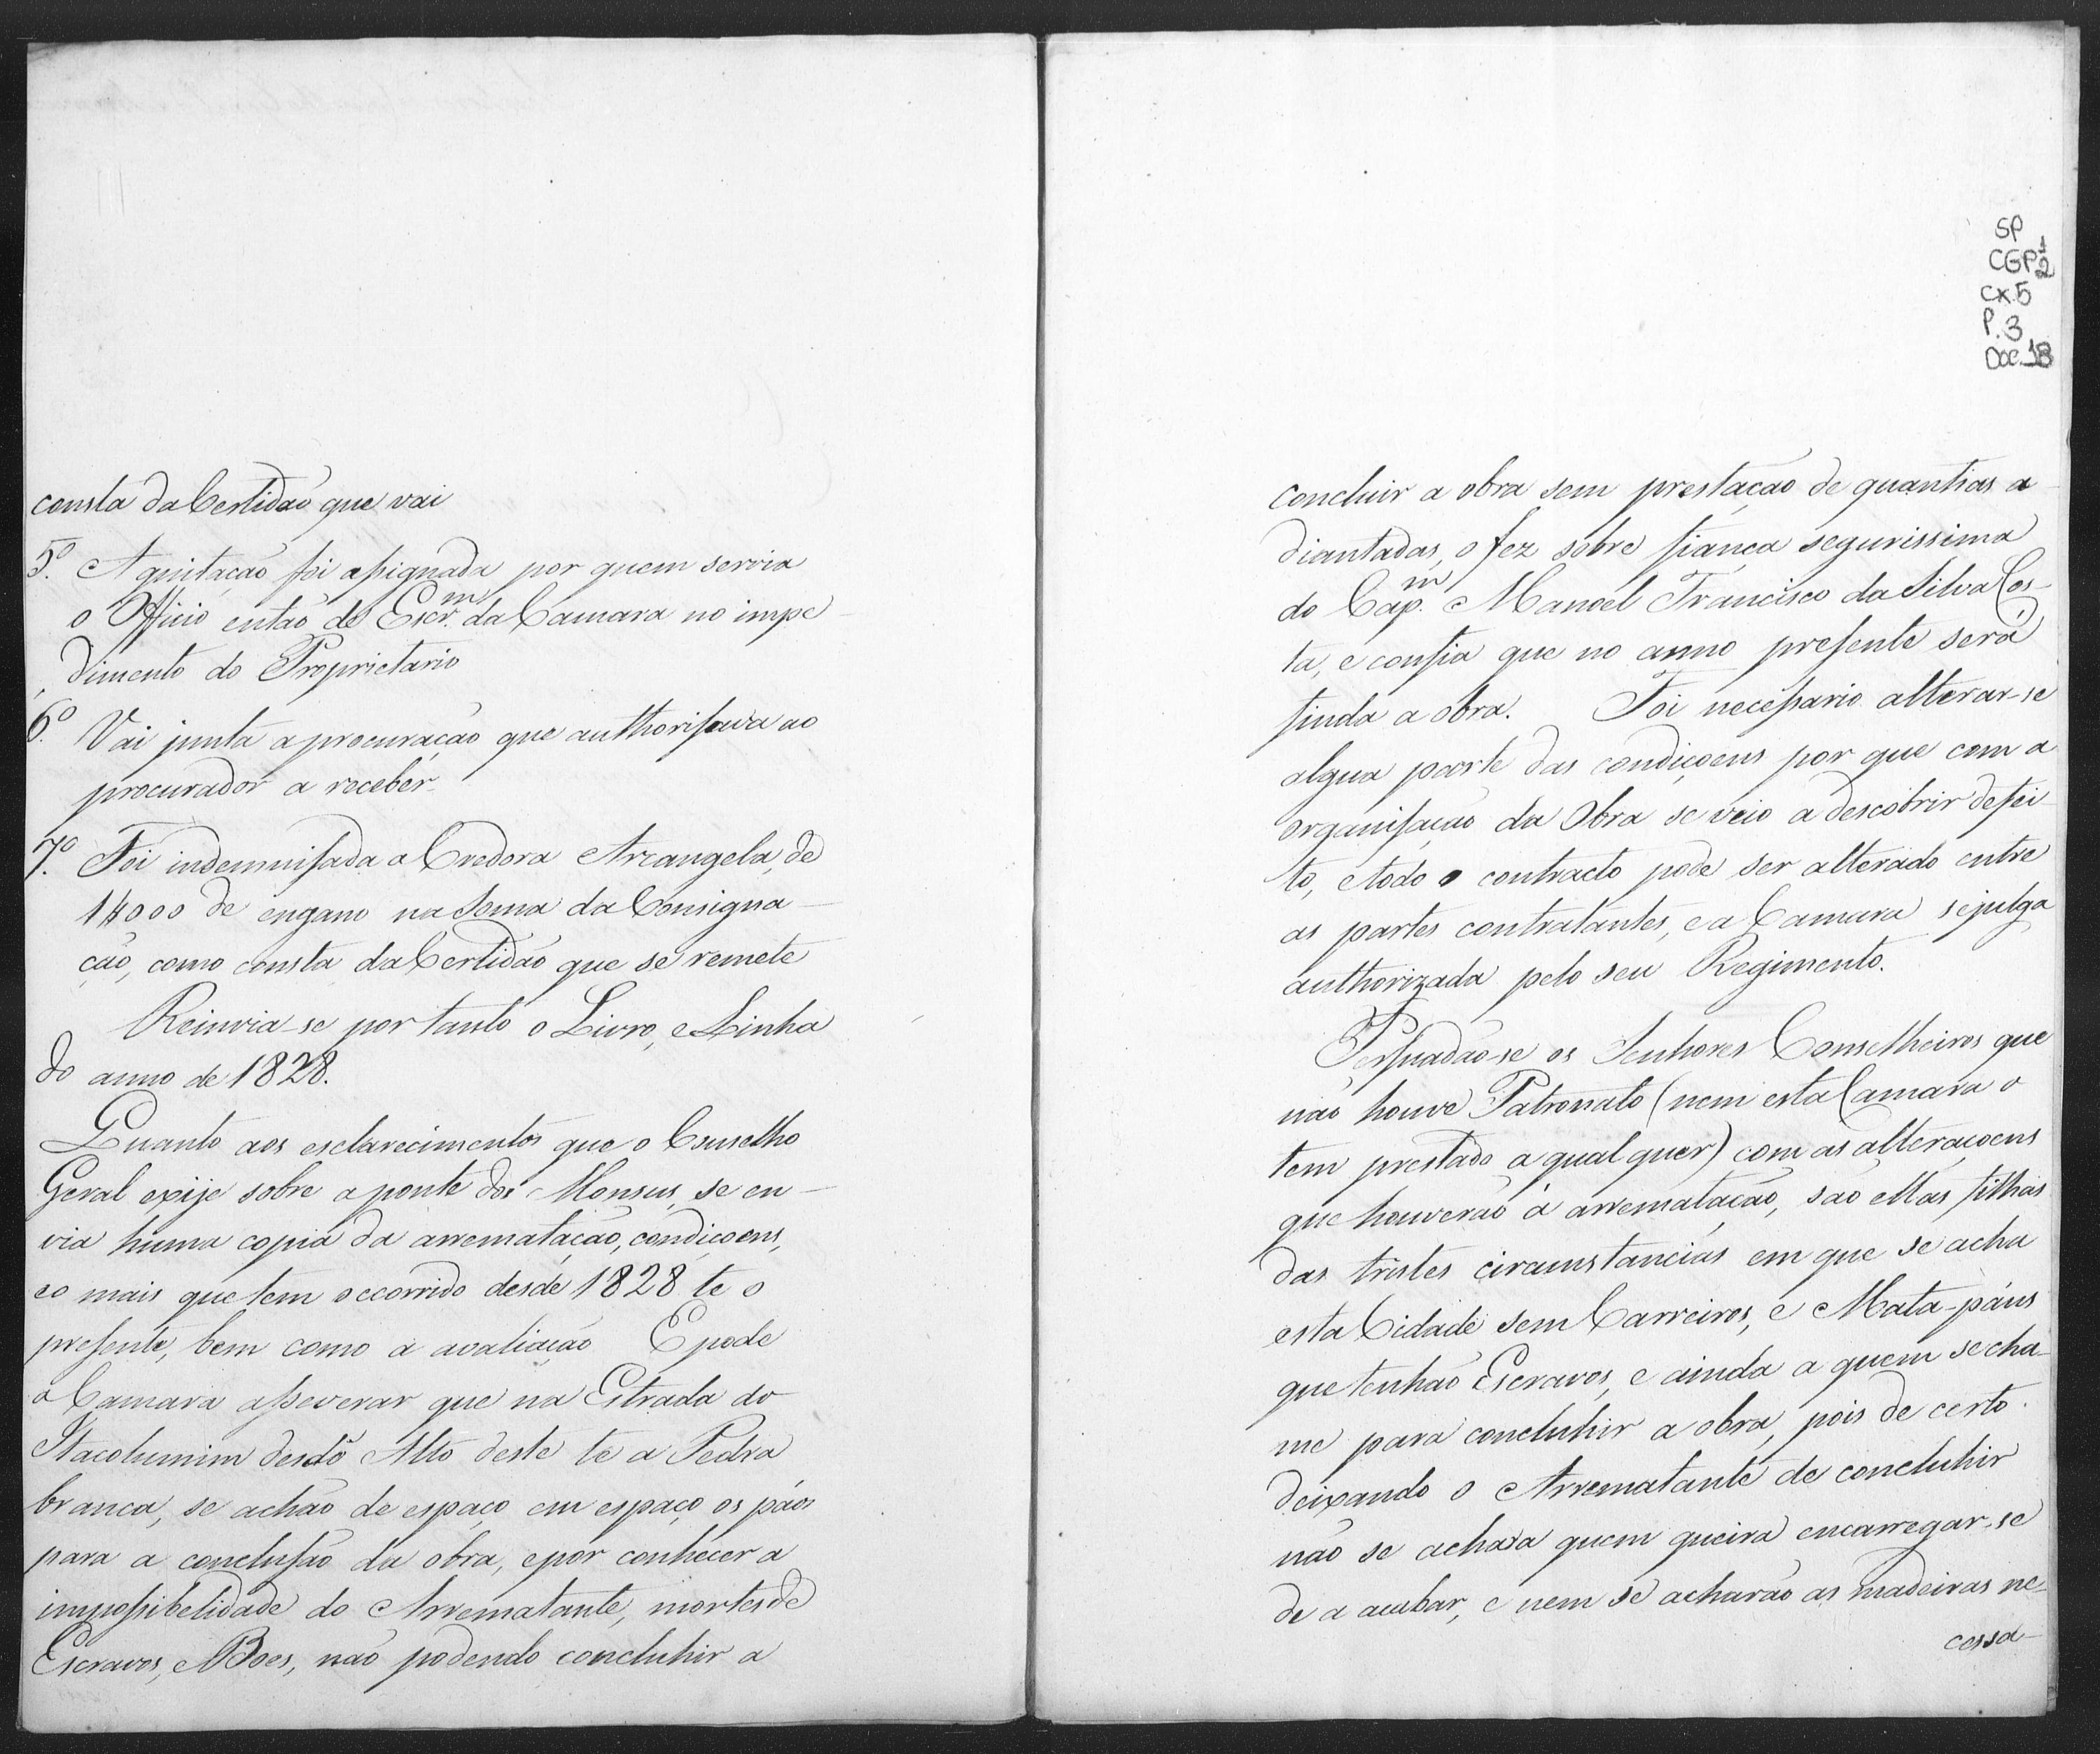 consta da Certidaõ que vai
5.º A quitaçaõ foi assignada por quem servia
o Officio entaõ de Escr.m da Camara no impe
dimento do Proprietario
6.º Vai junta a procuraçaõ que authorisava ao
procurador a receber.
7.º Foi indemnisada a Credora Arcangela, de
1$000 de engano na Soma da Consigna-
çaõ, como consta da Certidaõ que se remete
Reinvia-se por tanto o Livro, e Linha
do anno de 1828.
Quanto aos esclarecimentos que o Conselho
Geral exije sobre a ponte dos Monsus, se en-
via huma copia da arremataçaõ, condiçoens,
eo mais que tem occorrido desde 1828 te o
presente, bem como a avaliaçaõ E pode
a Camara asseverar que na Estrada do
Itacolumim desdo Alto deste te a Pedra
branca, se achaõ de espaço em espaço os páos
para a conclusaõ da obra, e por conhecer a
impossibelidade do Arrematante, mortes de
Escravos, e Boes, naõ podendo concluhir a
SP
CGP 1/2
CX.5
P.3
Doc.18
concluir a obra sem prestaçaõ de quantias a
diantadas, o fez sobre fiança segurissima
do Cap.m Manoel Francisco da Silva Cos-
ta, e confia que no anno presente será
finda a obra. Foi necessario alterar-se
algua parte das condiçoens por que com a
organisaçaõ da Obra se veio a descobrir defei
to, e todo o contracto pode ser alterado entre
as partes contratantes, e a Camara se julga
authorizada pelo seu Regimento.
Persuadaõ-se os Senhores Conselheiros que
naõ houve Patronato (nem esta Camara o
tem prestado a qual quer) com as alteraçoens
que houveraõ á arremataçaõ, saõ ellas filhas
das tristes circunstancias em que se acha
esta Cidade sem Carreiros, e Mata-páus
que tenhaõ Escravos, e ainda a quem se cha-
me para concluhir a obra, pois de certo
deixando o Arrematante de concluhir
naõ se achara quem queira encarregar-se
de a acabar, e nem se acharaõ as madeiras ne-
cessa-